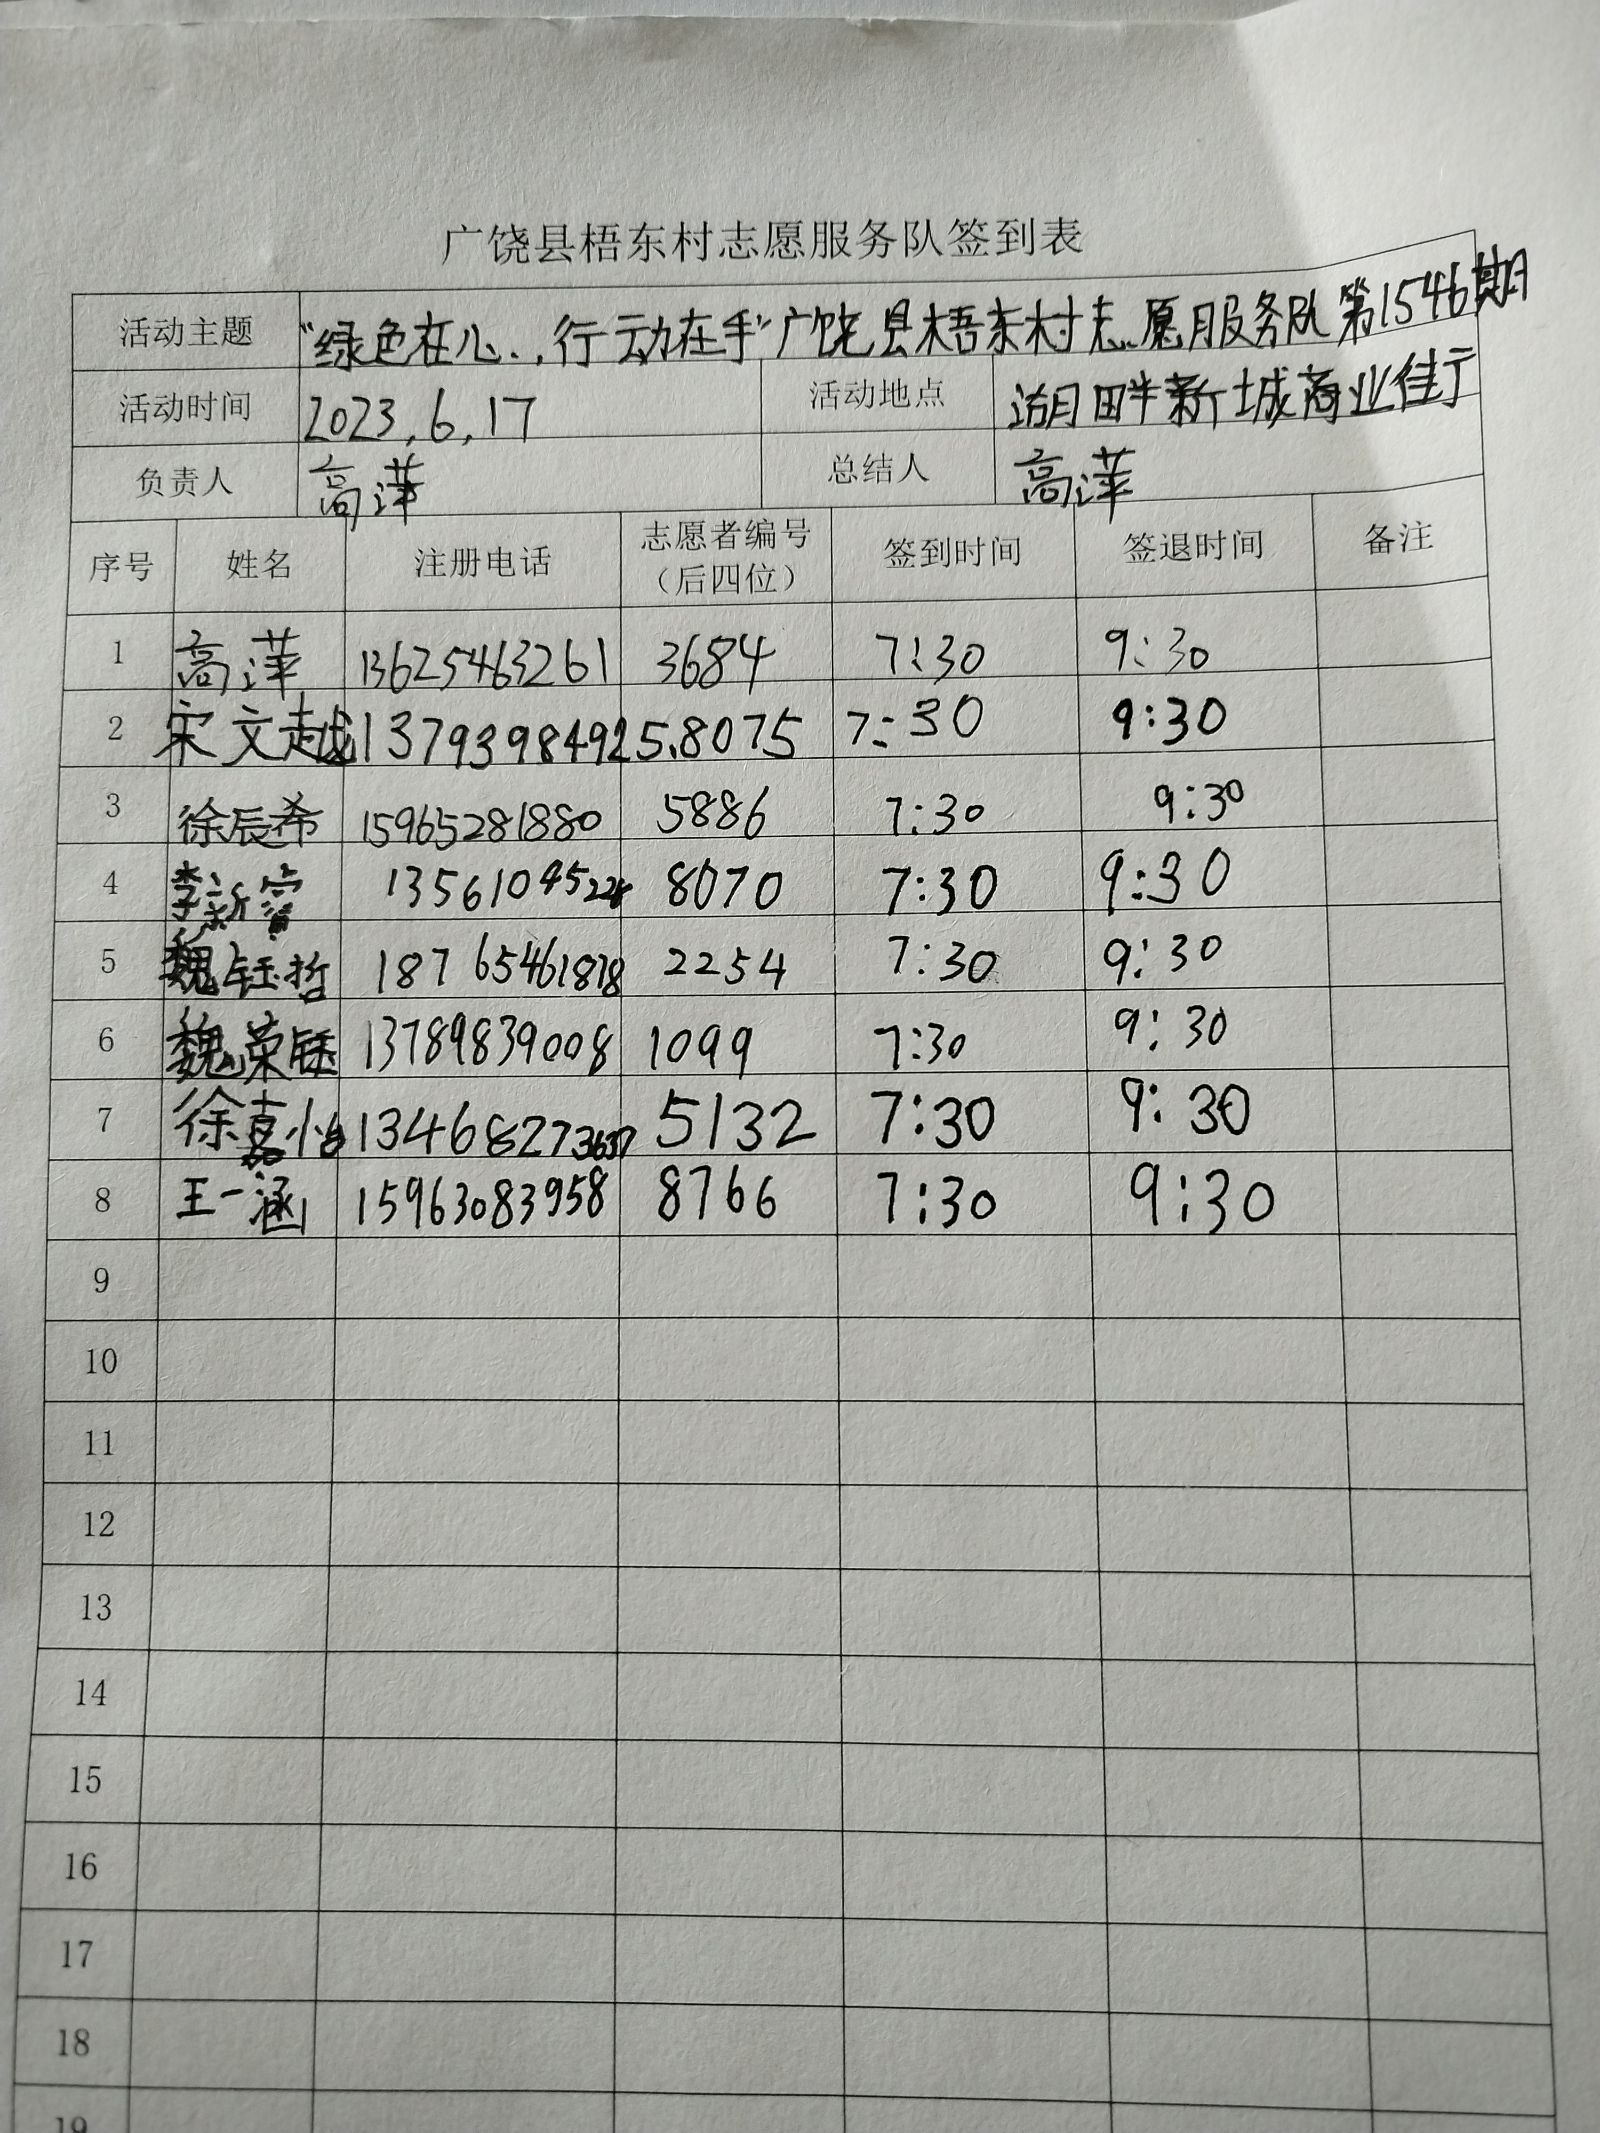 广饶县梧东村志愿服务队签到表
活动主题 "绿色在心..行动在手"广饶县梧东村志愿服务队第1546期
活动时间 2023.6.17 活动地点 湖畔新城商业街
负责人 高萍 总结人 高萍
序号 姓名 注册电话 志愿者编号（后四位） 签到时间 签退时间 备注
1 高萍 13625463261 3684 7:30 9:30
2 宋文越 13793984925.8075 7:30 9:30
3 徐辰希 15965281880 5886 7:30 9:30
4 李新 8070 7:30 9:30
5 魏钰哲 18765461878 2254 7:30 9:30
6 魏荣钰 13789839008 1099 7:30 9:30
7 徐嘉怡 5132 7:30 9:30
8 王一涵 15963083958 8766 7:30 9:30
9
10
11
12
13
14
15
16
17
18
19